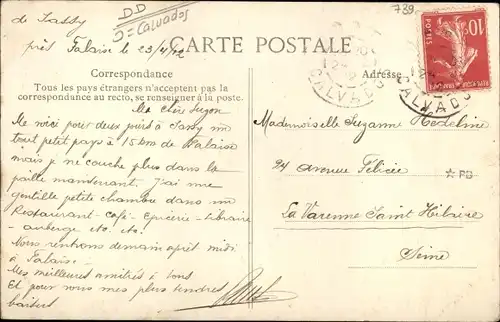 de Sassy
près Falaise le 23/4/12
D.D
J = Calvados
739
CARTE POSTALE
Correspondance
Tous les pays étrangers n'acceptent pas la
correspondance au recto, se renseigner à la poste.
Adresse
CALVADOS
CALVADOS
10
POSTES
Ma chère Suzon
Me voici pour deux jours à Sassy un
tout petit pays à 15 km de Falaise
mais je ne couche plus dans la
paille maintenant. J'ai une
gentille petite chambre dans un
Restaurant - café - Epicerie - Librairie
- auberge etc. etc!
Nous rentrons demain après midi
à Falaise.
Mes meilleures amitiés à tous
Et pour vous mes plus tendres
baisers
Mademoiselle Suzanne Hedeline
24 avenue Félicie
* PD
La Varenne Saint Hilaire
Seine